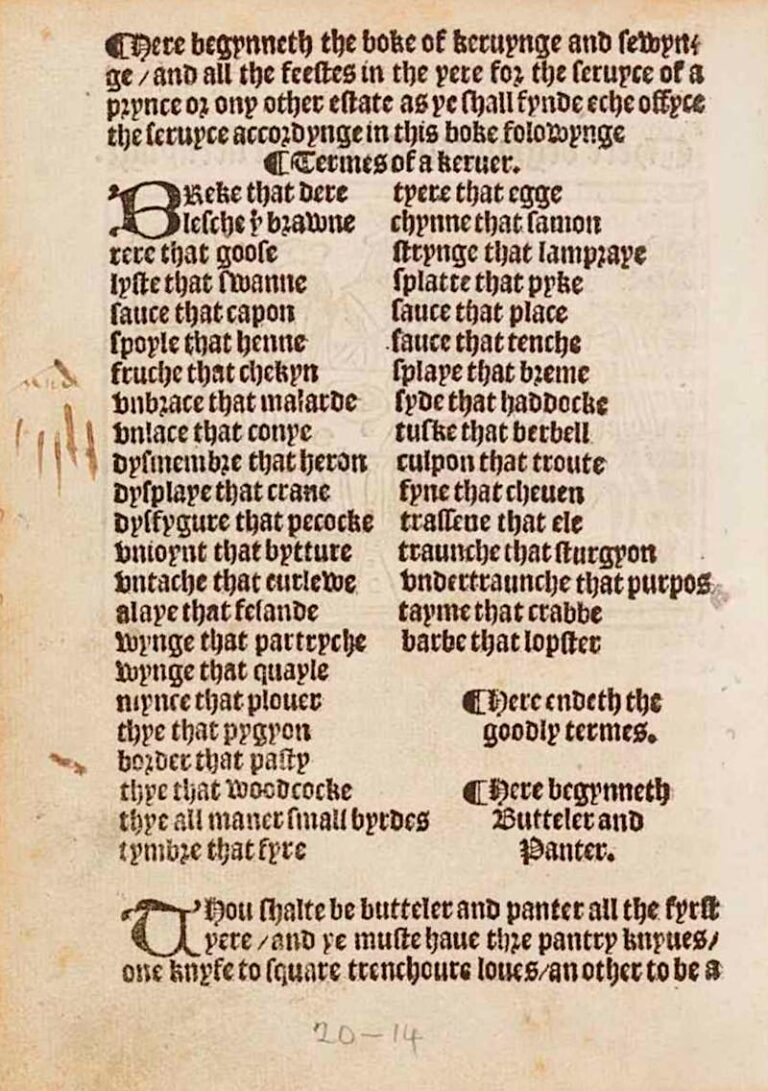 ¶Here begynneth the boke of keruynge and sewyn⸗
ge / and all the feestes in the yere for the seruyce of a
prynce or ony other estate as ye shall fynde eche offyce
the seruyce accordynge in this boke folowynge
¶Termes of a keruer.
BReke that dere
lesche yͤ brawne
rere that goose
lyfte that swanne
sauce that capon
spoyle that henne
fruche that chekyn
vnbrace that malarde
vnlace that conye
dysmembre that heron
dysplaye that crane
dysfygure that pecocke
vnioynt that bytture
vntache that curlewe
alaye that fesande
wynge that partryche
wynge that quayle
mynce that plouer
thye that pygyon
border that pasty
thye that woodcocke
thye all maner small byrdes
tymbre that fyre
tyere that egge
chynne that samon
strynge that lampraye
splatte that pyke
sauce that place
sauce that tenche
splaye that breme
syde that haddocke
tuske that berbell
culpon that troute
fyne that cheuen
trassene that ele
traunche that sturgyon
vndertraunche that purpos
tayme that crabbe
barbe that lopster
¶Here endeth the
goodly termes.
¶Here begynneth
Butteler and
Panter.
THou shalte be butteler and panter all the fyrst
yere / and ye muste haue thre pantry knyues /
one knyfe to square trenchoure loues / an other to be a
20-14